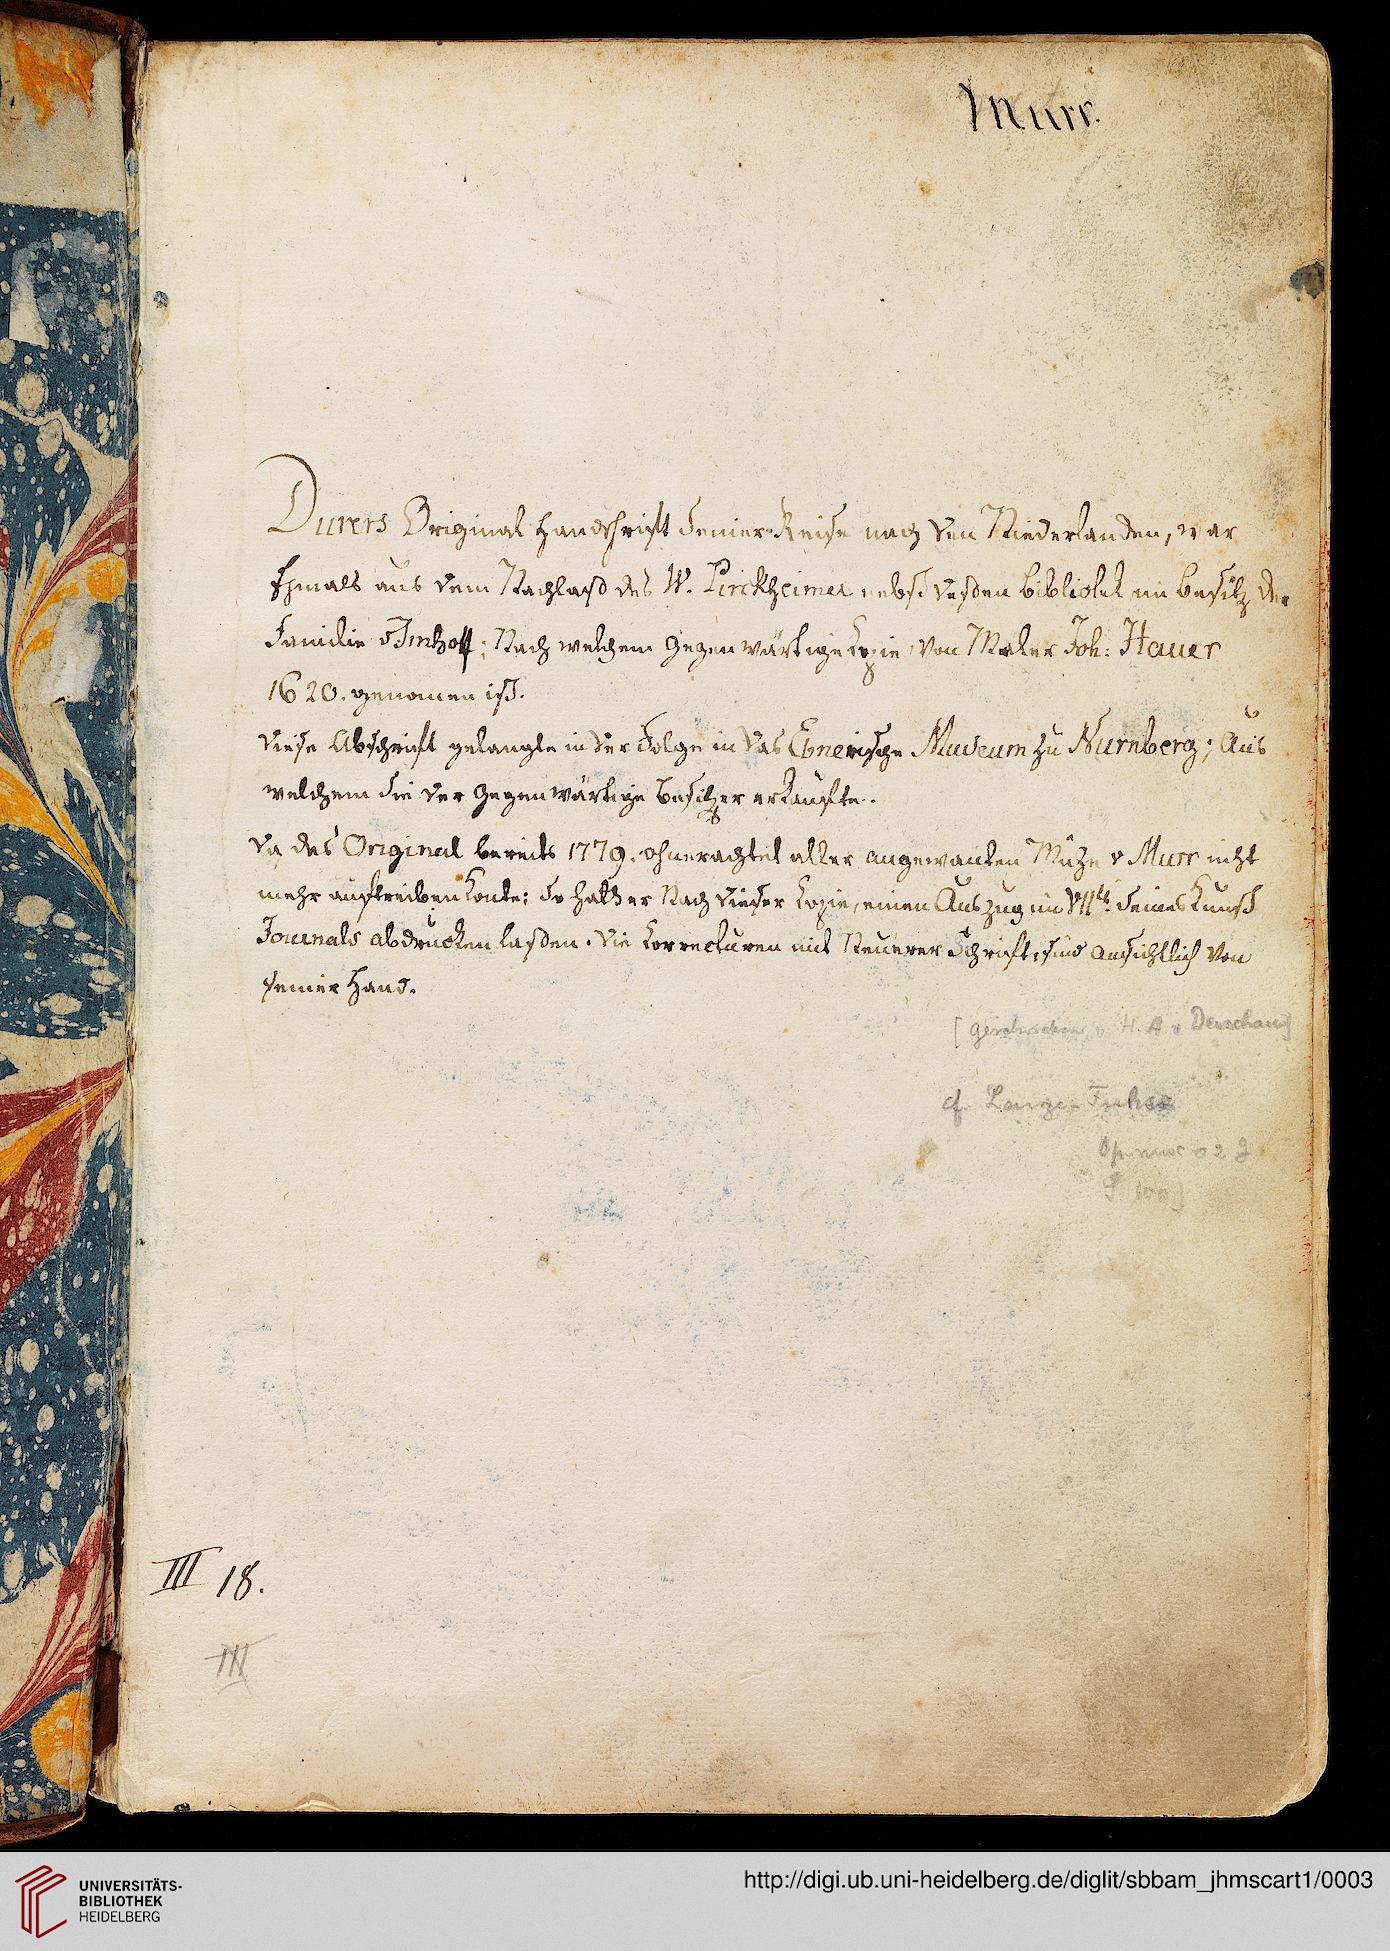 Murr.
Durers Original Handschrift seiner Reise nach den Niederlanden, war
Ehmals aus dem Nachlaß des W. Pirckheimer nebst deßen Bibliotek im Besitz der
Familie v Imhoff; Nach welchem gegenwärtige Copie von Maler Joh: Hauer
1620. genomen ist.
Diese Abschrift gelangte in der Folge in das Ebnerische Museum zu Nürnberg; Aus
welchem sie der gegenwärtige Besitzer erkaufte.
Da das Original bereits 1779. ohnerachtet aller angewanten Mühe v Murr nicht
mehr auftreiben konte; so hat Er Nach dieser Copie, einen Auszug im VII ten seines Kunst
Journals abdrucken laßen. Die Correcturen mit Neuerer Schrift, sind ansichtlich von
seiner Hand.
[geschrieben v. H. A v Derschau]
cf. Lange-Fuhse
S 100]
III 18.
III
UNIVERSITÄTS-
BIBLIOTHEK
HEIDELBERG
http://digi.ub.uni-heidelberg.de/diglit/sbbam_jhmscart1/0003